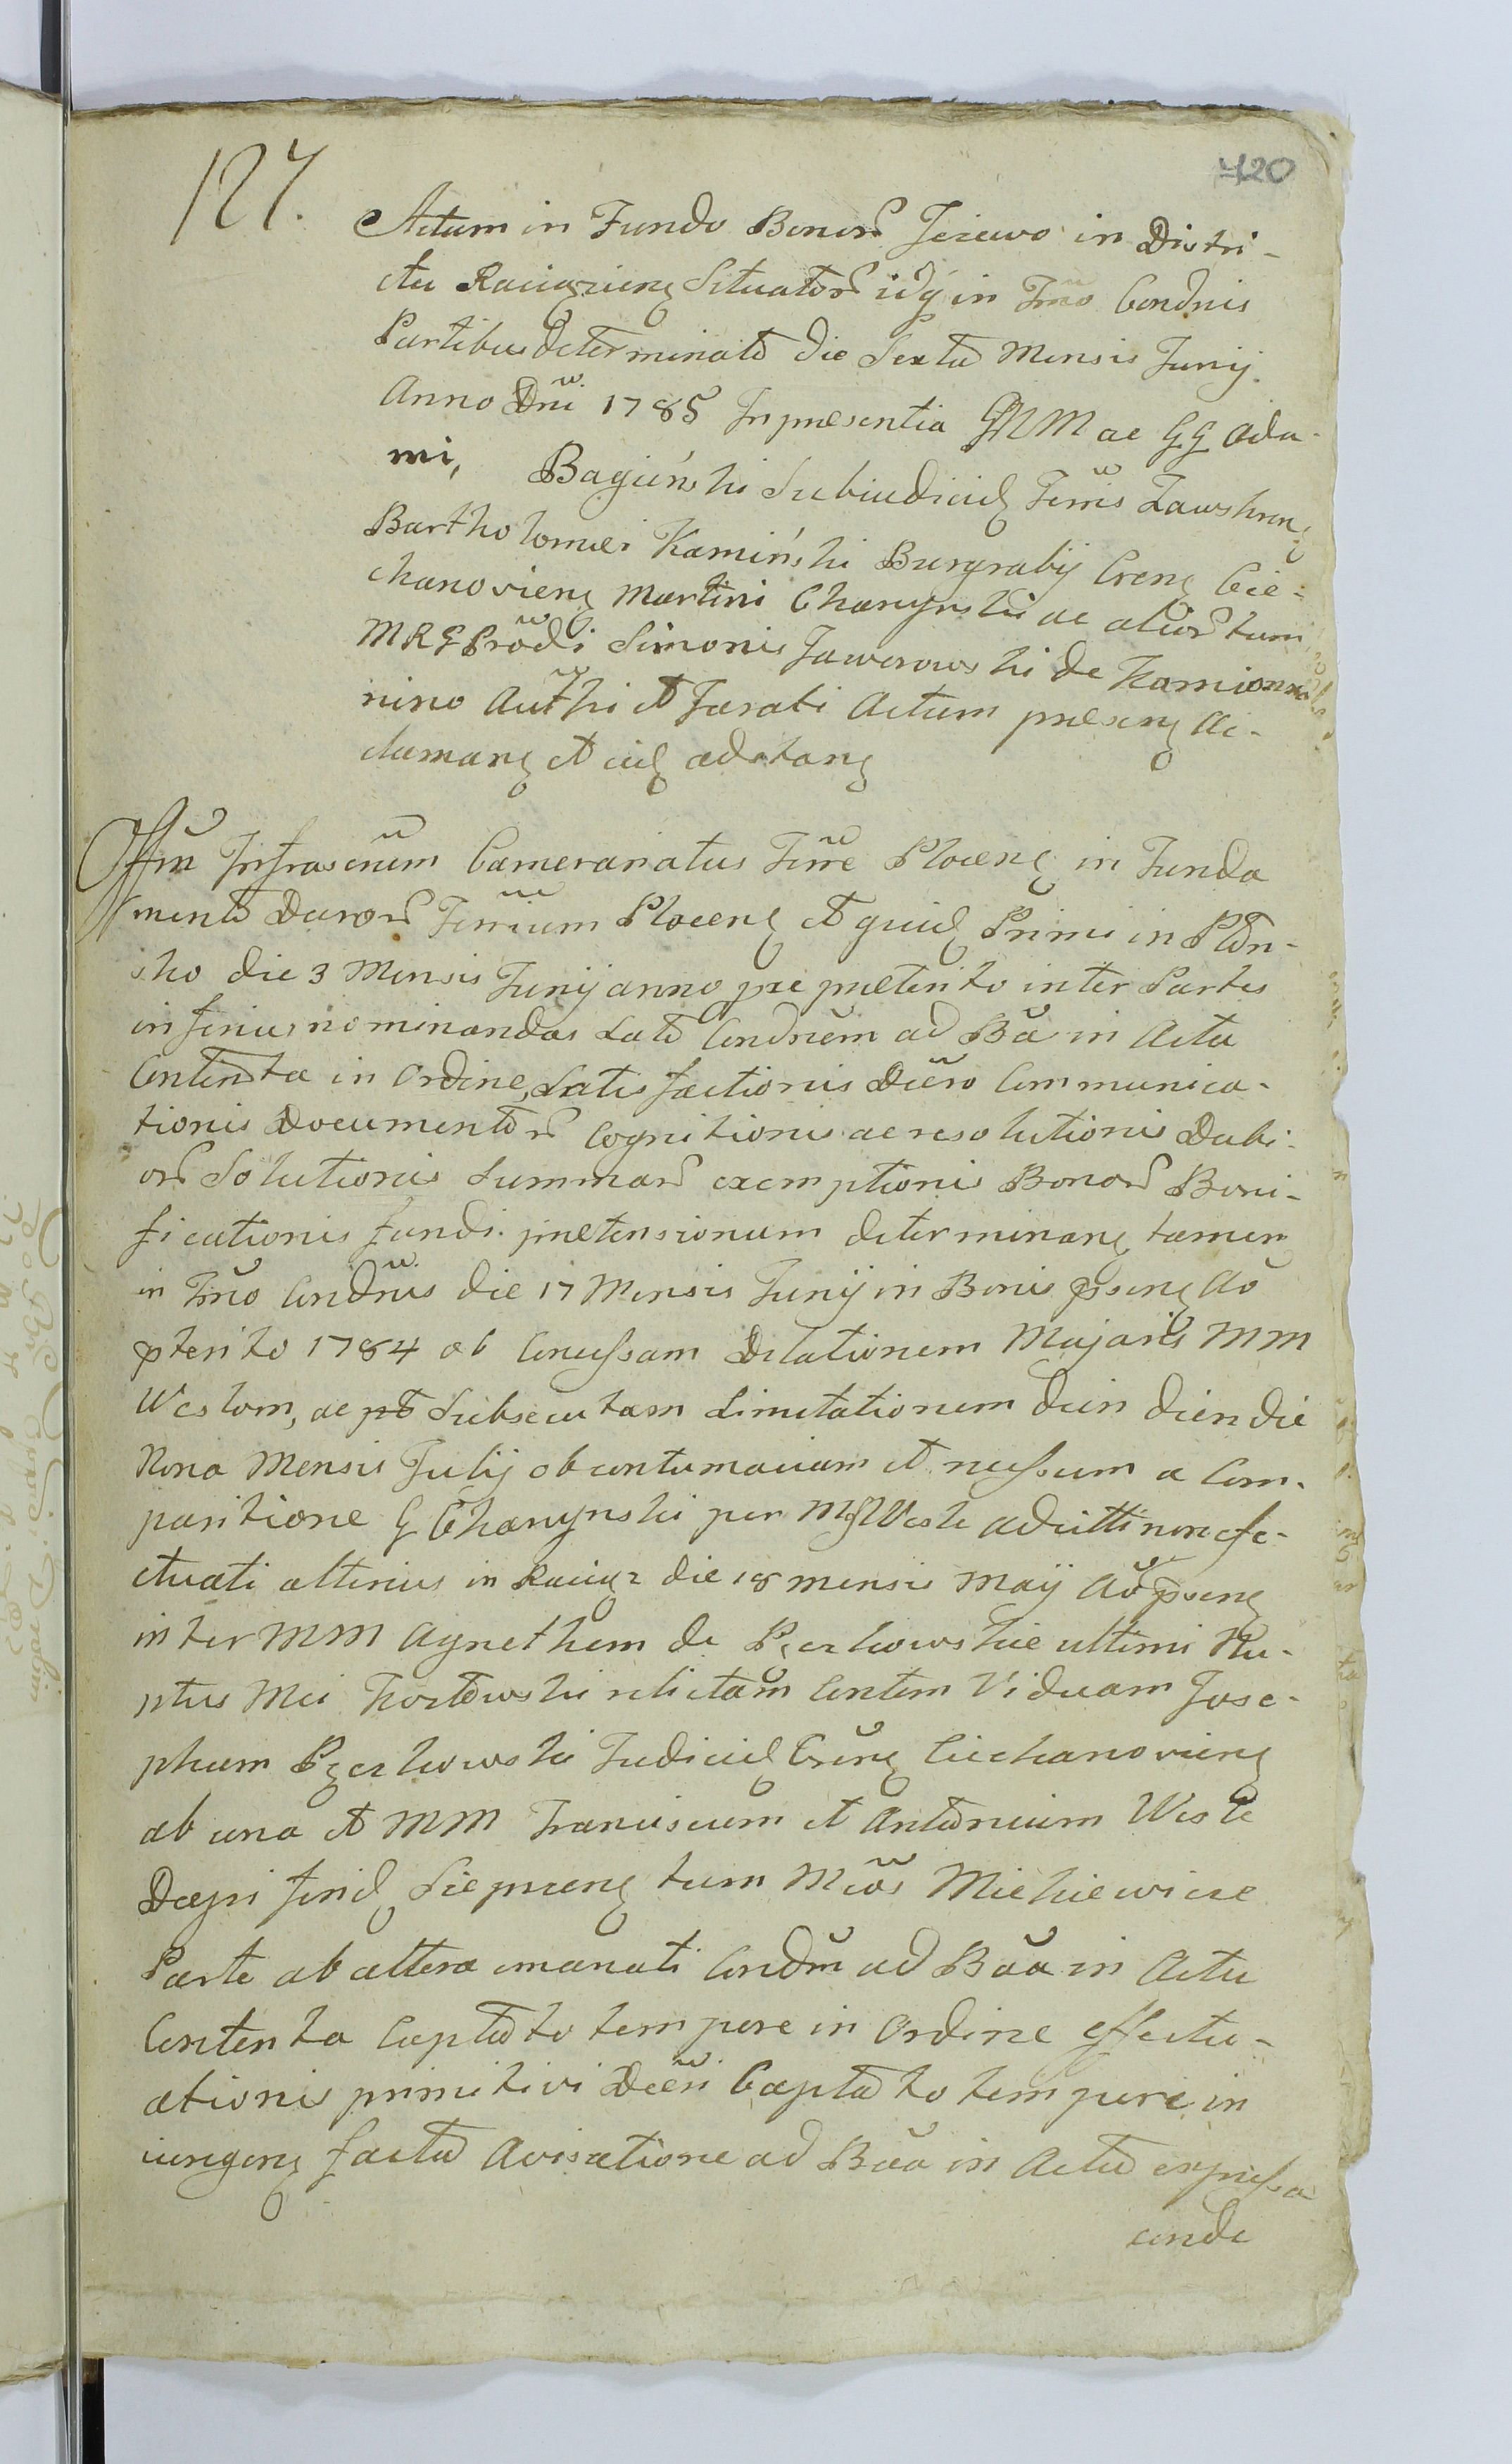 127.
420
Actum in Fundo Bonor Jeżewo in Distri-
ctu Raciążieng Situator idq in Tmo Condnis
Partibus determinato die Sexta Mensis Junij
Anno Dni 1785 In præsentia GMM ac GG Ada-
mi, Bagieński Subiudicid Terris Zawskren
Bartholomæi Kamiński Burgrabij Creng Cie-
chanovieng Martini Charzyński ac alior tum
MRGProdi Simonis Jaworowski de Kamionna
nino Authi et Jurati Actum præseng Ac-
clamang et eid adstang
Offm Infrascrium Cameranatus Terre Ploceng in Funda
mento Duror Terrium Ploceng et quid Primi in Plon-
sko die 3 Mensis Junij anno præpræterito inter Partes
inferius nominandas Lato Condnem ad Ba in Actu
Contenta in Ordine Satisfactionis Decro Communica-
tionis Documentor Cognitionis ac resolutionis Dubi-
or Solutionis Summar exemptionis Bonor Boni-
ficationis fundi prætensionum determinang tamen
in Tmo Condnis die 17 Mensis Junij in Bonis pseng Ao
pterito 1784 ob Concessam Dilationem Majoris MM
Weslom, ac Subsecutam Limitationem dein die
Nona Mensis Julij ob contumaciam et recessum a Com-
paritione G Charzyński per MG Wesle adcitti non effe-
ctuati alterius in Raciąz die 18 mensis Maij Ao pseng
inter MM Agnethem de Pęczkowskie ultimi Nu-
ptus Mci Kozłowski relictam Contem Viduam Jose-
phum Pęczkowski Judicid Creng Ciechanovieng
ab una et MM Franciscum et Antonium Wesle
Dapri ferid Sieprceng tum Mcos Mickiewicze
Parte ab altera emanati Condm ad Baa in Actu
Contenta Captato tempore in Ordine effectu-
ationis primitivi Decri Captato tempore in
iungeng facta Avisatione ad Baa in Acto expressa
unde